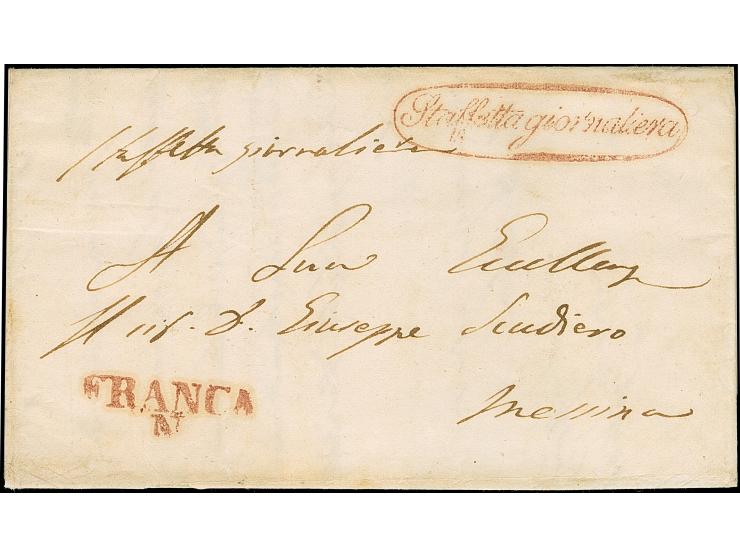 Staffetta giornaliera
Staffetta giornaliera
A Sua Eccellenza
Il Sig. D. Giuseppe Scudiero
Messina
FRANCA